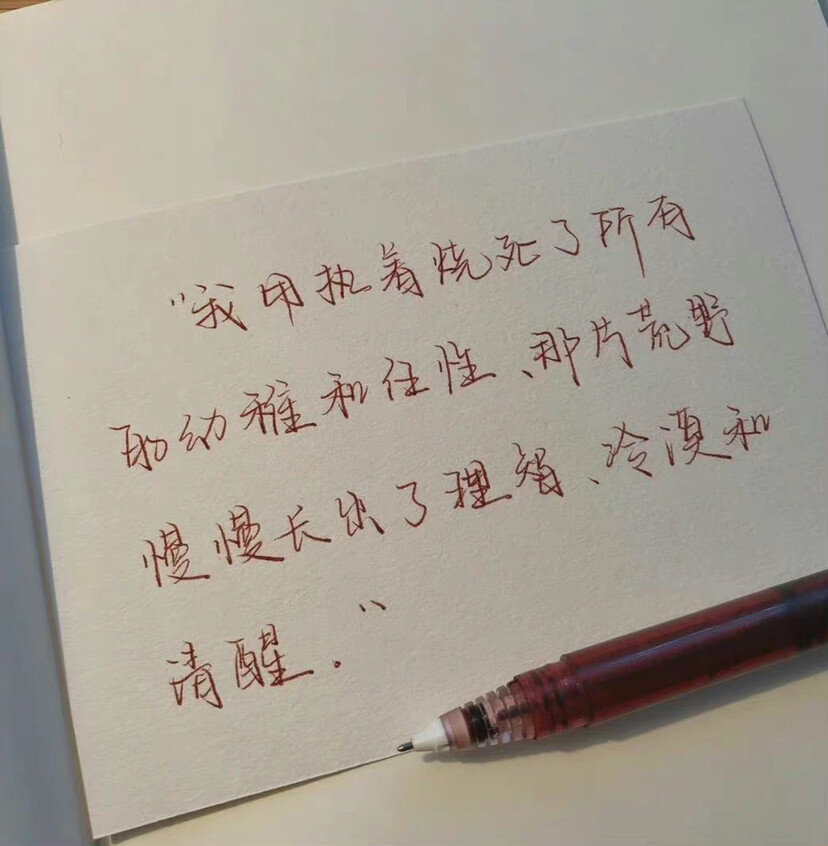 “我用执着烧死了所有
的幼稚和任性、那片荒野
慢慢长出了理智、冷漠和
清醒.”